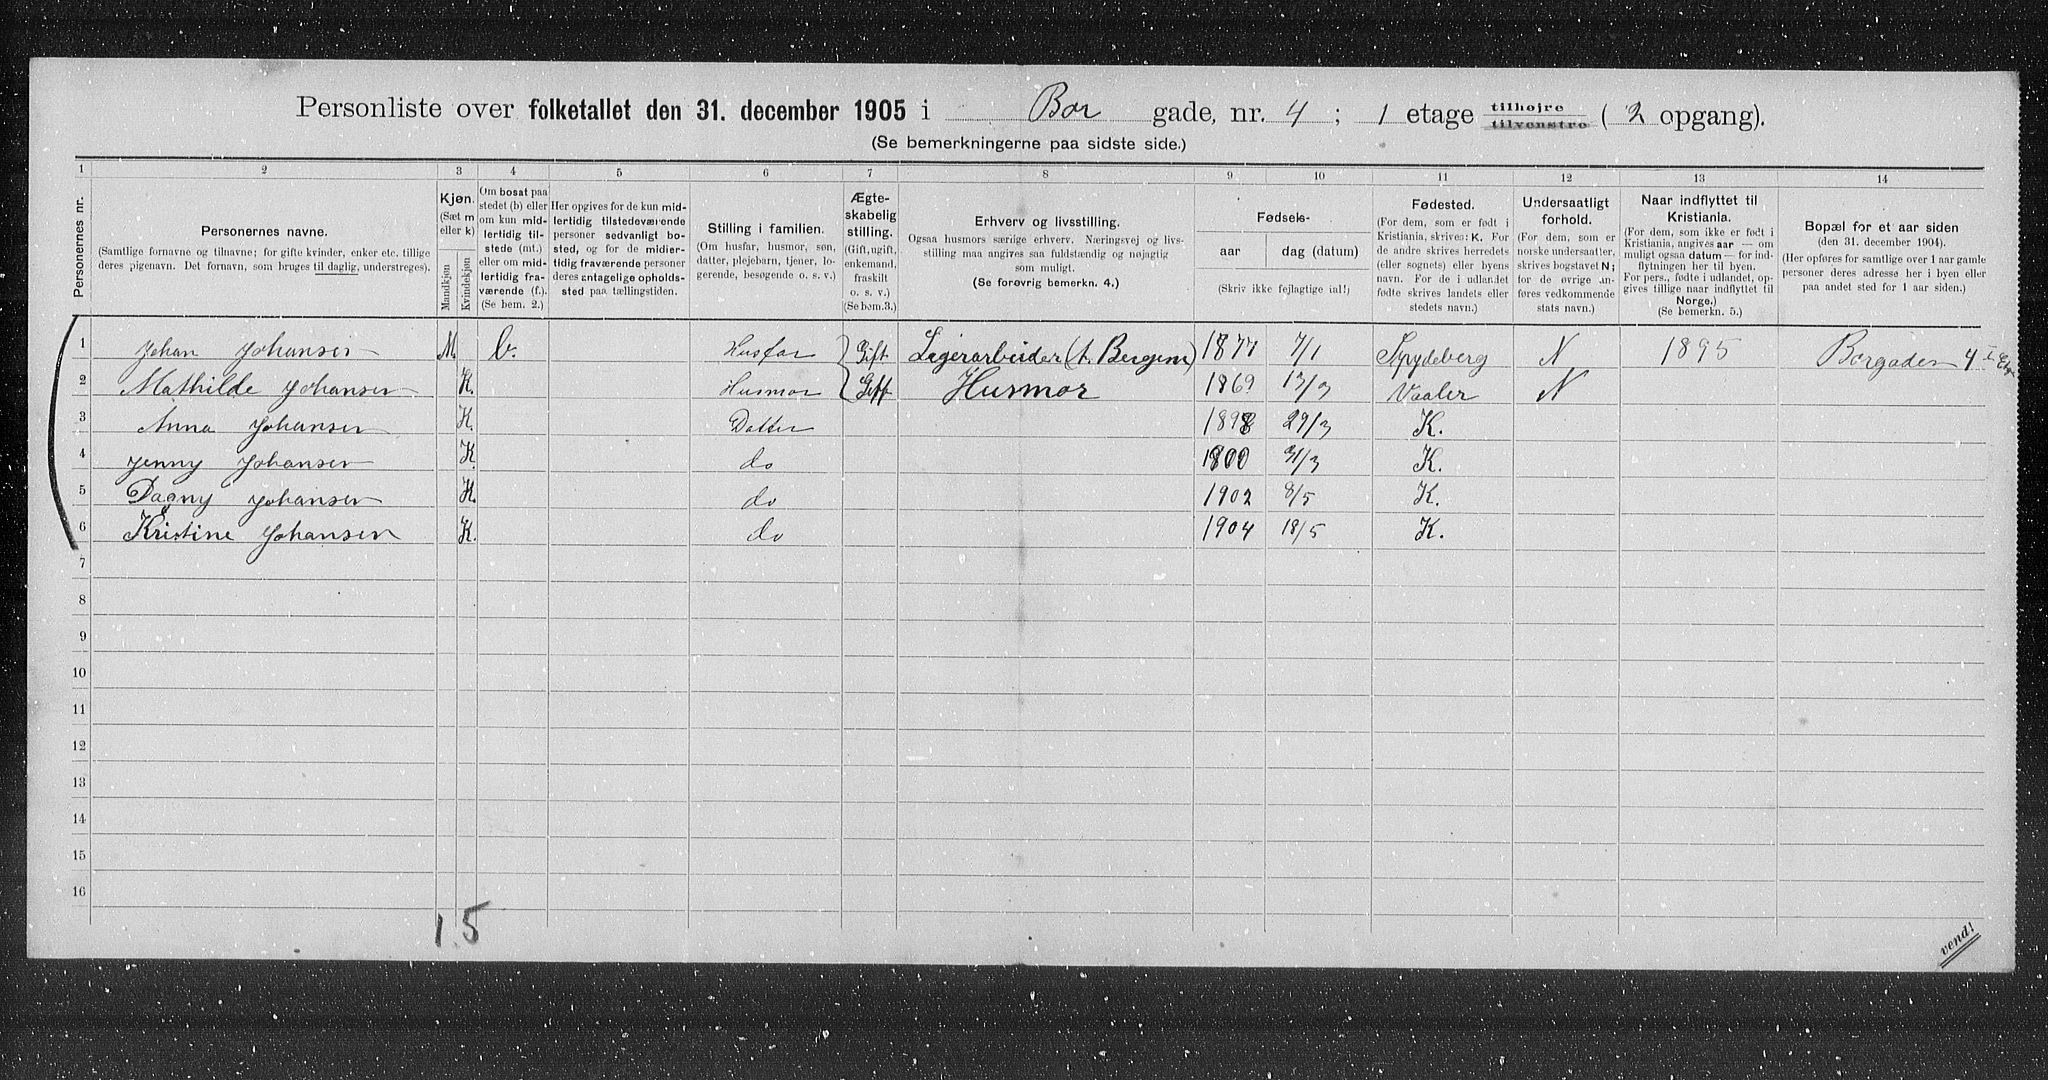 Personliste over folketallet den 31. december 1905 i Bor gade, nr. 4; 1 etage tilhøjre tilvenstre (2 opgang).
(Se bemerkningerne paa sidste side.)
1 2 3 4 5 6 7 8 9 10 11 12 13 14
Personernes nr.
Personernes navne.
(Samtlige fornavne og tilnavne; for gifte kvinder, enker etc. tillige deres pigenavn. Det fornavn, som bruges til daglig, understreges).
Kjøn.
(Sæt m eller k)
Mandkjøn
Kvindekjøn
Om bosat paa stedet (b) eller om kun midlertidig tilstede (mt.) eller om midlertidig fraværende (f.). (Se bem. 2.)
Her opgives for de kun midlertidig tilstedeværende personer sedvanligt bosted, og for de midlertidig fraværende personer deres antagelige opholdssted paa tællingstiden.
Stilling i familien.
(Om husfar, husmor, søn, datter, plejebarn, tjener, logerende, besøgende o. s. v.)
Ægteskabelig stilling.
(Gift, ugift, enkemand, fraskilt o. s. v.)
(Se bem. 3.)
Erhverv og livsstilling.
Ogsaa husmors særlige erhverv. Næringsvej og livsstilling maa angives saa fuldstændig og nøjagtig som muligt.
(Se forøvrig bemerkn. 4.)
Fødsels-
aar
dag (datum)
(Skriv ikke fejlagtige tal!)
Fødested.
(For dem, som er født i Kristiania, skrives: K. For de andre skrives herredets (eller sognets) eller byens navn. For de i udlandet fødte skrives landets eller stedets navn.)
Undersaatligt forhold.
(For dem, som er norske undersaatter, skrives bogstavet N; for de øvrige anføres vedkommende stats navn.)
Naar indflyttet til Kristiania.
(For dem, som ikke er født i Kristiania, angives aar — om muligt ogsaa datum — for indflytningen her til byen. For pers., fødte i udlandet, opgives tillige naar indflyttet til Norge.)
(Se bemerkn. 5.)
Bopæl for et aar siden
(den 31. december 1904).
(Her opføres for samtlige over 1 aar gamle personer deres adresse her i byen eller paa andet sted for 1 aar siden.)
1 Johan Johansen M. b. Husfar Gift Lagerarbeider (t. Bergene) 1877 7/1 Spydeberg N 1895 Borgaden 4 I Etg
2 Mathilde Johansen K. Husmor Gift Husmor 1869 13/3 Vaaler N
3 Anna Johansen K. Datter 1898 29/3 K.
4 Jenny Johansen K. do 1900 31/3 K.
5 Dagny Johansen K. do 1902 8/5 K.
6 Kristine Johansen K. do 1904 18/5 K.
7
8
9
10
11
12
13
14
15
16
1 5
vend!